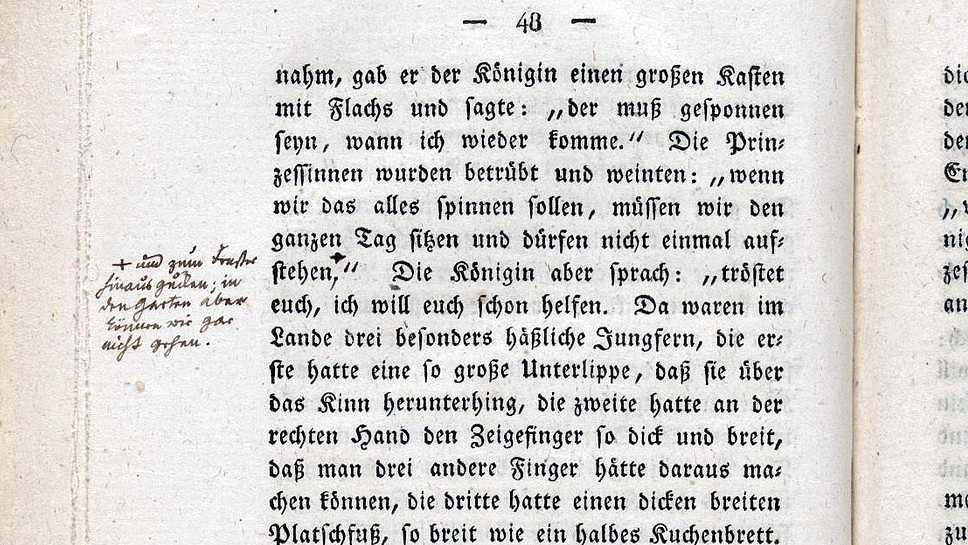 — 48 —
nahm, gab er der Königin einen großen Kasten
mit Flachs und sagte: „der muß gesponnen
seyn, wann ich wieder komme.“ Die Prin-
zessinnen wurden betrübt und weinten: „wenn
wir das alles spinnen sollen, müssen wir den
ganzen Tag sitzen und dürfen nicht einmal auf-
stehen,“ Die Königin aber sprach: „tröstet
euch, ich will euch schon helfen. Da waren im
Lande drei besonders häßliche Jungfern, die er-
ste hatte eine so große Unterlippe, daß sie über
das Kinn herunterhing, die zweite hatte an der
rechten Hand den Zeigefinger so dick und breit,
daß man drei andere Finger hätte daraus ma-
chen können, die dritte hatte einen dicken breiten
Platschfuß, so breit wie ein halbes Kuchenbrett.
+ und zum Fenster
hinausgucken; in
den Garten aber
können wir gar
nicht gehen.
die
„w
nig
zes
an
me
zu